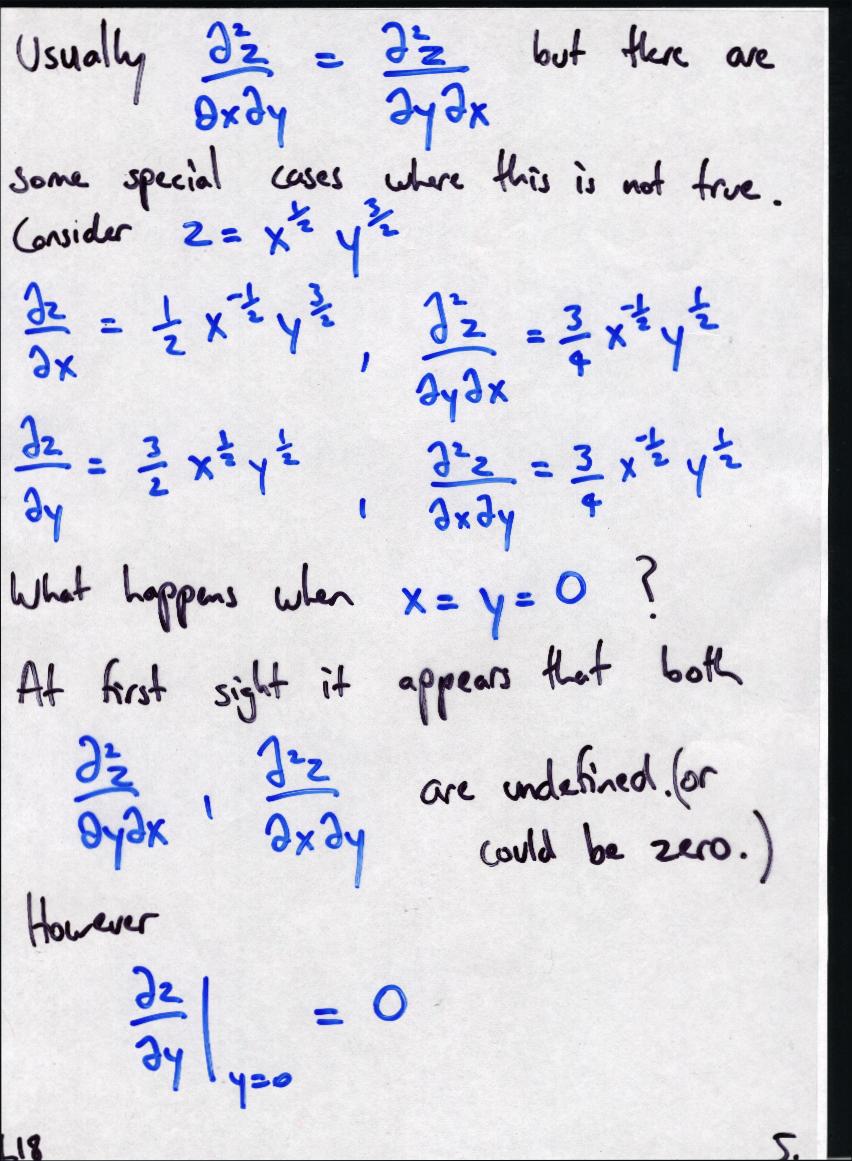 Usually ∂²z/∂x∂y = ∂²z/∂y∂x but there are
some special cases where this is not true.
Consider z = x^{1/2} y^{3/2}
∂z/∂x = 1/2 x^{-1/2} y^{3/2} , ∂²z/∂y∂x = 3/4 x^{-1/2} y^{1/2}
∂z/∂y = 3/2 x^{1/2} y^{1/2} , ∂²z/∂x∂y = 3/4 x^{-1/2} y^{1/2}
What happens when x = y = 0 ?
At first sight it appears that both
∂²z/∂y∂x , ∂²z/∂x∂y are undefined. (or
could be zero.)
However
∂z/∂y |_{y=0} = 0
L18 5.